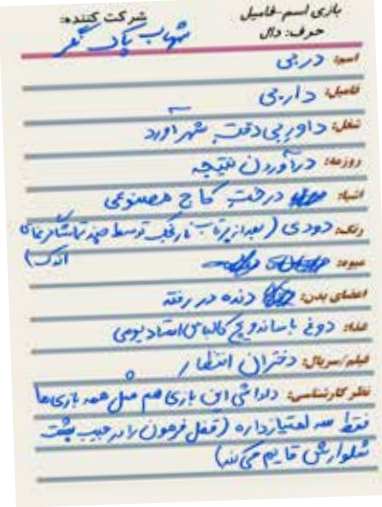 بازی اسم-فامیل
شرکت کننده:
حرف: دال
شهاب پاک نگر
اسم: دربی
فامیل: داربی
شغل: داور بی دقت شهرآورد
روزمه: درآوردن نتیجه
اشیا: درخت کاج مصنوعی
رنگ: دودی (بعد از پرتاب نارنجک توسط چند تماشاگرنمای
اندک)
میوه:
اعضای بدن: دنده در رفته
غذا: دوغ با ساندویچ کالباس استادیومی
فیلم/سریال: دختران انتظار
نظر کارشناسی: داداشی این بازی هم مثل همه بازی‌ها
فقط سه امتیاز داره (قفل فرمون را در جیب پشت
شلوارش قایم می‌کند)